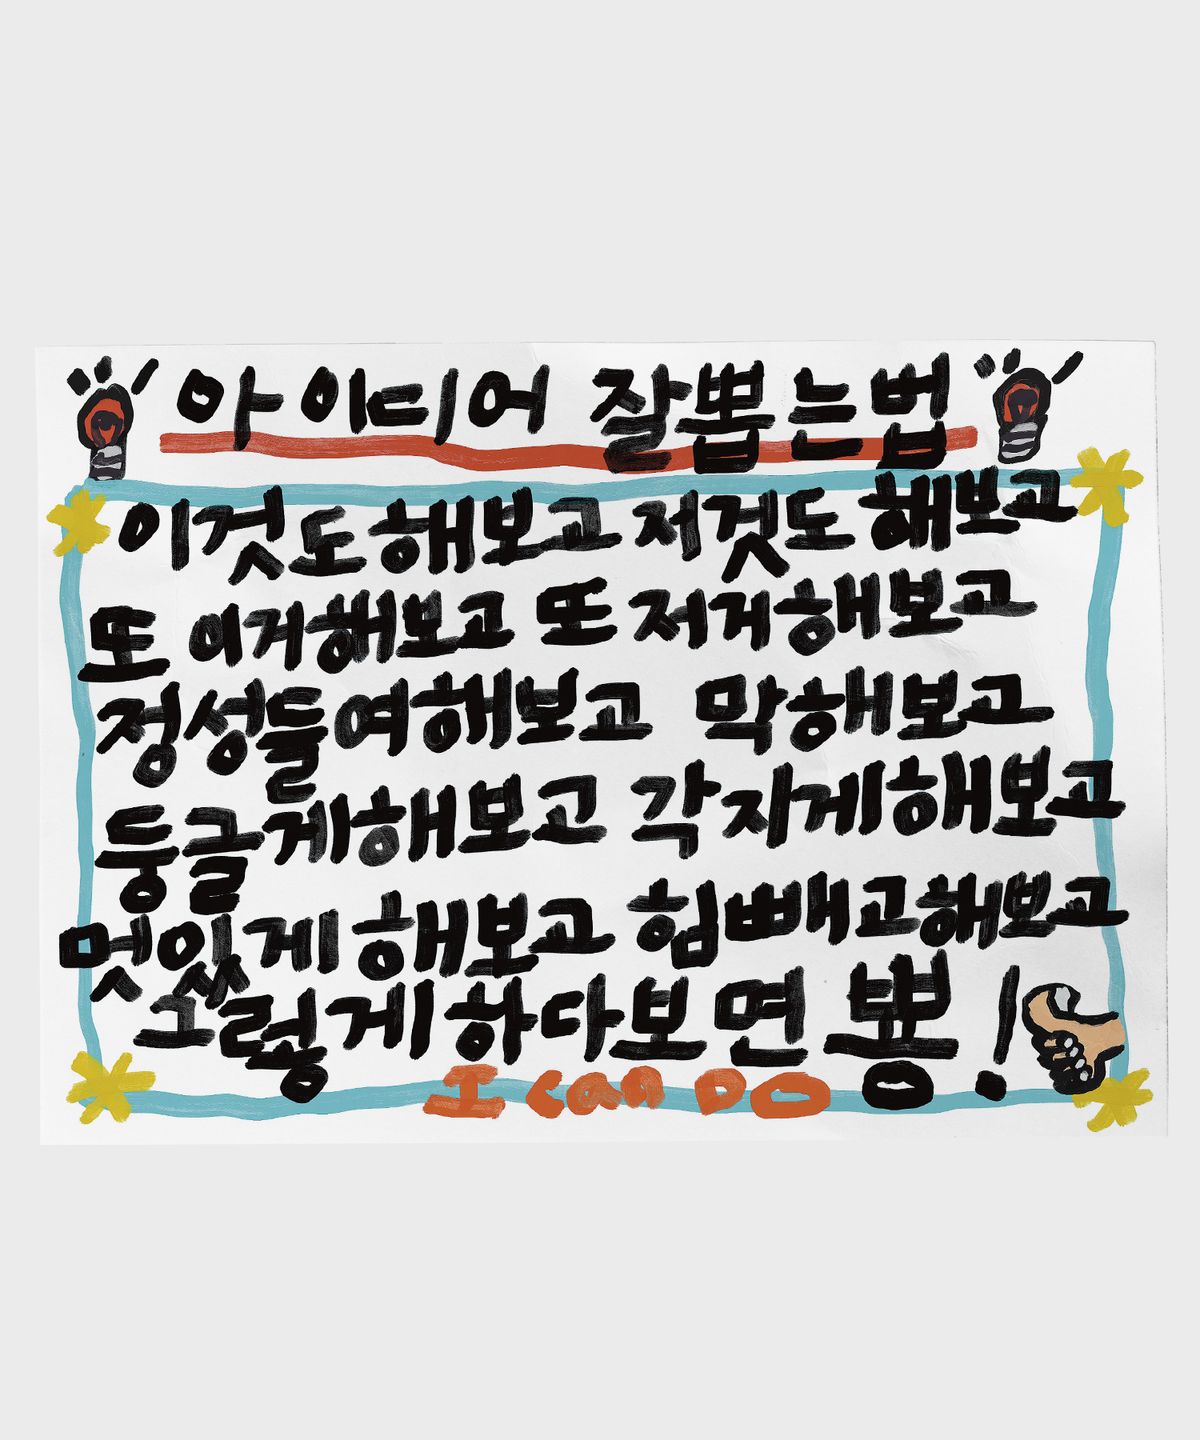 아이디어 잘뽑는법
이것도해보고 저것도해보고
또 이거해보고 또 저거해보고
정성들여해보고 막해보고
둥글게해보고 각지게해보고
멋있게 해보고 힘빼고해보고
그렇게하다보면 뿅!
I can DO